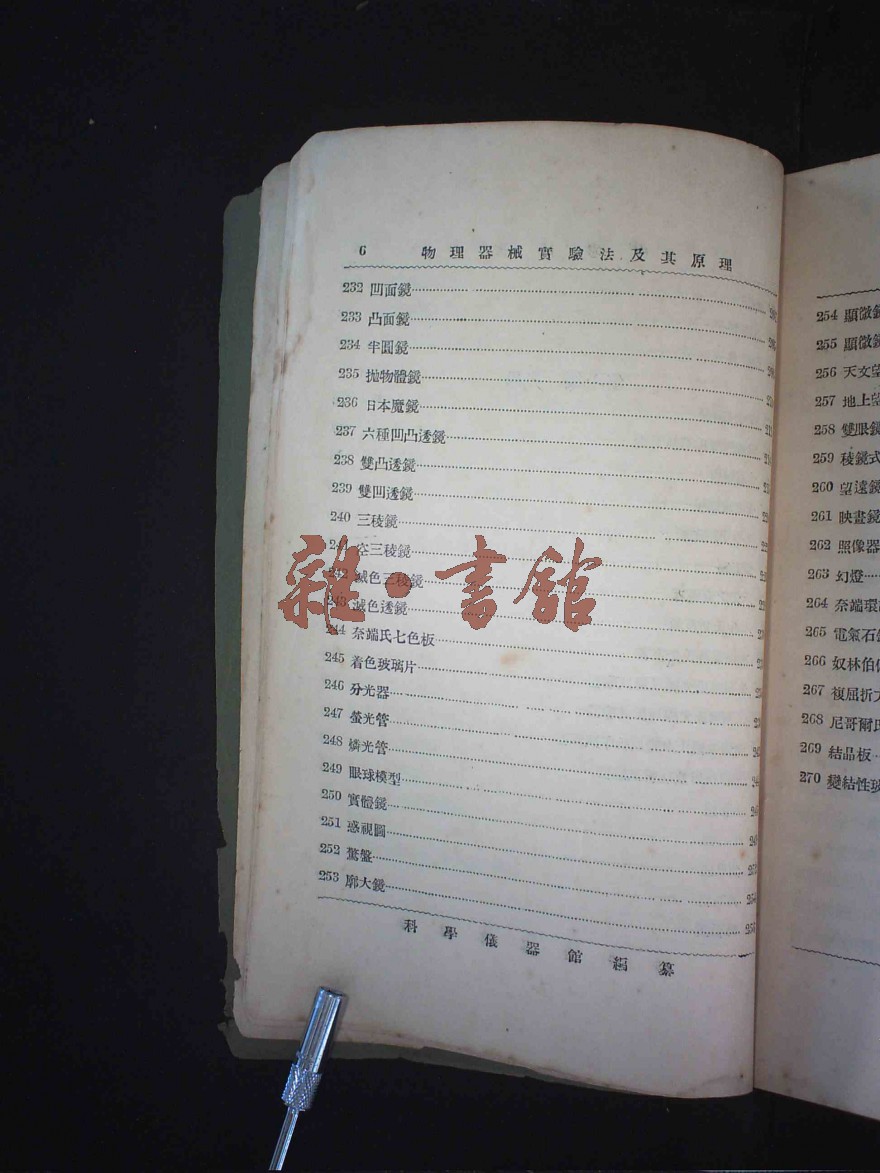 6 物理器械實驗法及其原理
232 凹面鏡
233 凸面鏡
234 半圓鏡
235 抛物體鏡
236 日本魔鏡
237 六種凹凸透鏡
238 雙凸透鏡
239 雙凹透鏡
240 三稜鏡
空三稜鏡
242 滅色三稜鏡
243 滅色透鏡
244 奈端氏七色板
245 着色玻璃片
246 分光器
247 螢光管
248 燐光管
249 眼球模型
250 實體鏡
251 惑視圖
252 驚盤
253 廓大鏡
科學儀器館編纂
雜·書館
254 顯微鏡
255 顯微鏡
256 天文望
257 地上望
258 雙眼鏡
259 稜鏡式
260 望遠鏡
261 映畫鏡
262 照像器
263 幻燈
264 奈端環
265 電氣石
266 奴林伯
267 複屈折
268 尼哥爾氏
269 結晶板
270 變結性玻